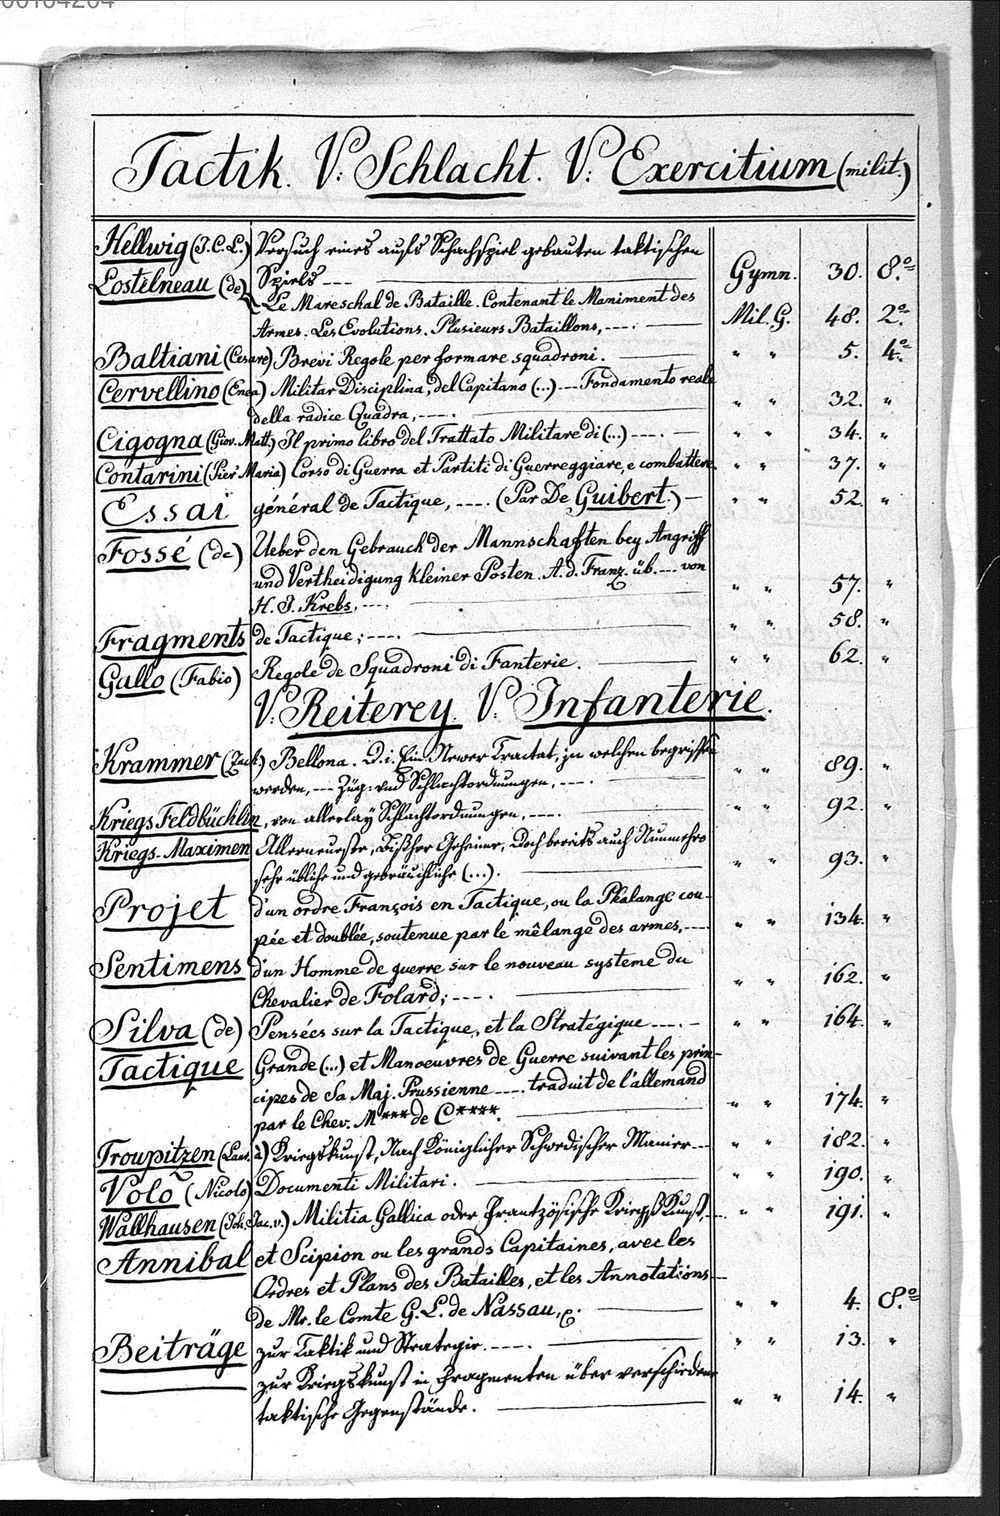 00104204
Tactik. V. Schlacht. V. Exercitium (milit.)
Hellwig (J.C.L.) Versuch eines aufs Schachspiel gebauten taktischen
Spiels --- Gymn. 30. 8.o
Lostelneau (de) Le Mareschal de Bataille. Contenant le Maniment des
Armes. Les Evolutions. Plusieurs Bataillons, ---. Mil. G. 48. 2.o
Baltiani (Cesare) Brevi Regole per formare squadroni. " " 5. 4.o
Cervellino (Enea) Militar Disciplina, del Capitano (...) --- Fondamento reale
della radice Quadra, ---. " " 32. "
Cigogna (Giov. Matt.) Il primo libro del Trattato Militare di (...) ---. " " 34. "
Contarini (Pier Maria) Corso di Guerra et Partiti di Guerreggiare, e combattere " " 37. "
Essai général de Tactique, ---. (Par De Guibert.) " " 52. "
Fossé (de) Ueber den Gebrauch der Mannschaften bey Angriff
und Vertheidigung kleiner Posten. A. d. Franz. üb. --- von
H. J. Krebs, ---. " " 57. "
Fragments de Tactique; ---. " " 58. "
Gallo (Fabio) Regole de Squadroni di Fanterie. " " 62. "
V. Reiterey. V. Infanterie.
Krammer (Zach.) Bellona. D. i. Ein Newer Tractat, in welchen begriffen
werden, --- Züg: und Schlachtordnungen, ---. " " 89. "
Kriegs Feldbüchlin, von allerlay Schlachtordnungen, ---. " " 92. "
Kriegs-Maximen Allerneueste, Bißher Geheime, Doch bereits auch Nunmehro
sehr übliche und gebräuchliche (...). " " 93. "
Projet d'un ordre François en Tactique, ou la Phalange cou-
pée et doublée, soutenue par le mêlange des armes, --- " " 134. "
Sentimens d'un Homme de guerre sur le nouveau systeme du
Chevalier de Folard; ---. " " 162. "
Silva (de) Pensées sur la Tactique, et la Stratégique ---. " " 164. "
Tactique Grande (...) et Manoeuvres de Guerre suivant les prin-
cipes de Sa Maj. Prussienne --- traduit de l'allemand
par le Chev. M*** de C****. " " 174. "
Troupitzen (Laur. à) Kriegskunst, Nach Königlicher Schwedischer Manier --- " " 182. "
Volo (Nicolo) Documenti Militari. " " 190. "
Wallhausen (Joh. Jac. v.) Militia Gallica oder Frantzösische Kriegs Kunst --- " " 191. "
Annibal et Scipion ou les grands Capitaines, avec les
Ordres et Plans des Batailles, et les Annotations ---
de Mr. le Comte G. L. de Nassau, " " 4. 8.o
Beiträge zur Taktik und Strategie. ---. " " 13. "
zur Kriegskunst in Fragmenten über verschiedene
taktische Gegenstände. " " 14. "